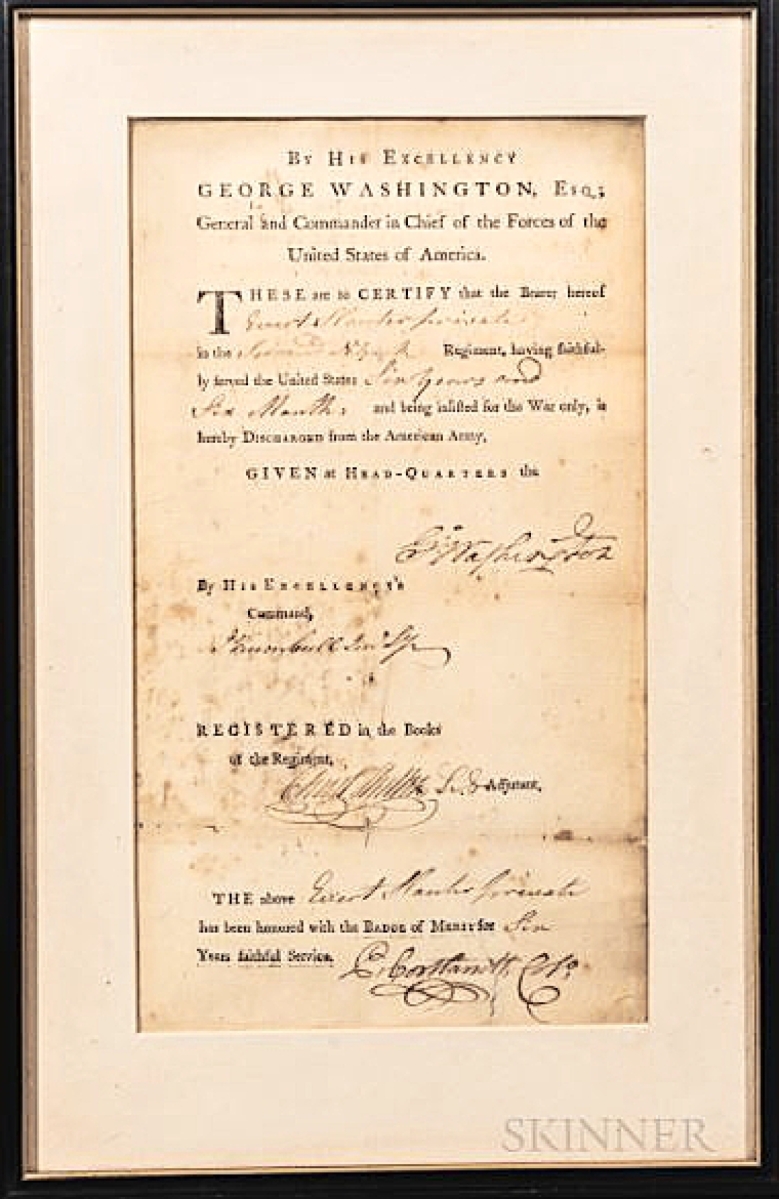 By His Excellency
GEORGE WASHINGTON, Esq;
General and Commander in Chief of the Forces of the
United States of America.
THESE are to CERTIFY that the Bearer hereof
Evert private
in the Second Regiment, having faithful-
ly served the United States Six Years and
Six Months and being inlisted for the War only, is
hereby Discharged from the American Army,
GIVEN at Head-Quarters the
Go Washington
By His Excellency's
Command,
J Trumbull Junr Sy
REGISTERED in the Books
of the Regiment,
Adjutant,
THE above Evert private
has been honored with the Badge of Merit for Six
Years faithful Service. P. Cortlandt, Colo.
SKINNER